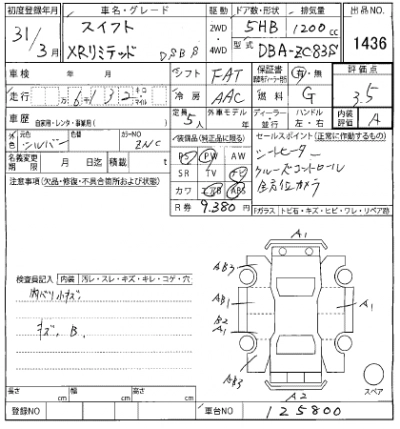 初度登録年月 車名・グレード 駆動 ドア数・形状 排気量 出品NO
31/3月 スイフト 2WD・4WD 5HB 1200cc 1436
XRリミテッド DSBS 型式 DBA-ZC83S
車検 年 月 シフト FAT 保証書 有・無 評価点
走行 万6132 キロ マイル 冷房 AAC 燃料 G 3.5
車歴 自家用・レンタ・事業用( ) 定員 5人 外車モデル 年 ディーラー 並行 ハンドル 左・右 内装評価 A
元色 シルバー カラーNO ZNC 装備品(純正品に限る) セールスポイント(正常に作動するもの)
名義変更期限 月 日迄 積載 t PS PW AW シートヒーター
注意事項(欠品・修復・不具合箇所および状態) SR TV ナビ クルーズコントロール
カワ エアB ABS 全方位カメラ
R券 9.380円
Fガラス トビ石・キズ・ヒビ・ワレ・リペア跡
A1
AB3
検査員記入 内装 汚レ・スレ・キズ・キレ・コゲ・穴
内ベリ小キズ
AB1 A1
B2
A1
キズ、B、
AB3
スペア
A1
長さ cm 幅 cm 高さ cm
登録NO 車台NO 125800